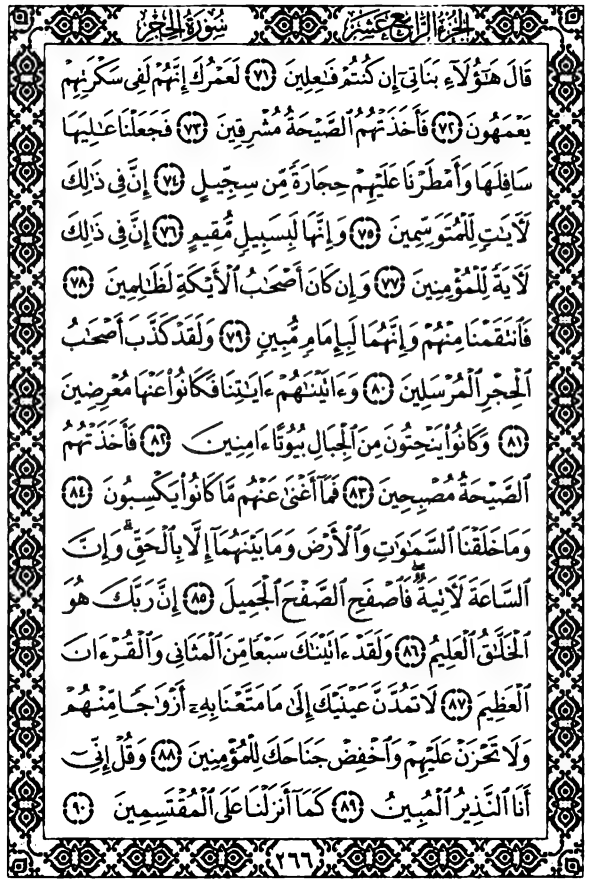 الجزء الرابع عشر سورة الحجر
قَالَ هَٰٓؤُلَآءِ بَنَاتِىٓ إِن كُنتُمْ فَٰعِلِينَ ﴿٧١﴾ لَعَمْرُكَ إِنَّهُمْ لَفِى سَكْرَتِهِمْ
يَعْمَهُونَ ﴿٧٢﴾ فَأَخَذَتْهُمُ ٱلصَّيْحَةُ مُشْرِقِينَ ﴿٧٣﴾ فَجَعَلْنَا عَٰلِيَهَا
سَافِلَهَا وَأَمْطَرْنَا عَلَيْهِمْ حِجَارَةً مِّن سِجِّيلٍ ﴿٧٤﴾ إِنَّ فِى ذَٰلِكَ
لَءَايَٰتٍ لِّلْمُتَوَسِّمِينَ ﴿٧٥﴾ وَإِنَّهَا لَبِسَبِيلٍ مُّقِيمٍ ﴿٧٦﴾ إِنَّ فِى ذَٰلِكَ
لَءَايَةً لِّلْمُؤْمِنِينَ ﴿٧٧﴾ وَإِن كَانَ أَصْحَٰبُ ٱلْأَيْكَةِ لَظَٰلِمِينَ ﴿٧٨﴾
فَٱنتَقَمْنَا مِنْهُمْ وَإِنَّهُمَا لَبِإِمَامٍ مُّبِينٍ ﴿٧٩﴾ وَلَقَدْ كَذَّبَ أَصْحَٰبُ
ٱلْحِجْرِ ٱلْمُرْسَلِينَ ﴿٨٠﴾ وَءَاتَيْنَٰهُمْ ءَايَٰتِنَا فَكَانُوا۟ عَنْهَا مُعْرِضِينَ
﴿٨١﴾ وَكَانُوا۟ يَنْحِتُونَ مِنَ ٱلْجِبَالِ بُيُوتًا ءَامِنِينَ ﴿٨٢﴾ فَأَخَذَتْهُمُ
ٱلصَّيْحَةُ مُصْبِحِينَ ﴿٨٣﴾ فَمَآ أَغْنَىٰ عَنْهُم مَّا كَانُوا۟ يَكْسِبُونَ ﴿٨٤﴾
وَمَا خَلَقْنَا ٱلسَّمَٰوَٰتِ وَٱلْأَرْضَ وَمَا بَيْنَهُمَآ إِلَّا بِٱلْحَقِّ ۗ وَإِنَّ
ٱلسَّاعَةَ لَءَاتِيَةٌ ۖ فَٱصْفَحِ ٱلصَّفْحَ ٱلْجَمِيلَ ﴿٨٥﴾ إِنَّ رَبَّكَ هُوَ
ٱلْخَلَّٰقُ ٱلْعَلِيمُ ﴿٨٦﴾ وَلَقَدْ ءَاتَيْنَٰكَ سَبْعًا مِّنَ ٱلْمَثَانِى وَٱلْقُرْءَانَ
ٱلْعَظِيمَ ﴿٨٧﴾ لَا تَمُدَّنَّ عَيْنَيْكَ إِلَىٰ مَا مَتَّعْنَا بِهِۦٓ أَزْوَٰجًا مِّنْهُمْ
وَلَا تَحْزَنْ عَلَيْهِمْ وَٱخْفِضْ جَنَاحَكَ لِلْمُؤْمِنِينَ ﴿٨٨﴾ وَقُلْ إِنِّىٓ
أَنَا ٱلنَّذِيرُ ٱلْمُبِينُ ﴿٨٩﴾ كَمَآ أَنزَلْنَا عَلَى ٱلْمُقْتَسِمِينَ ﴿٩٠﴾
٢٦٦